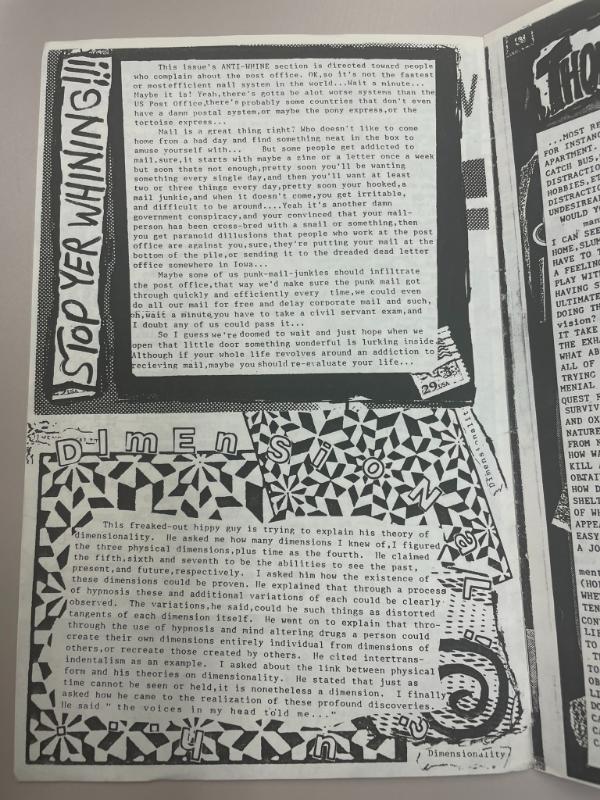 STOP YER WHINING!!!
This issue's ANTI-WHINE section is directed toward people
who complain about the post office. OK,so it's not the fastest
or mosteficient mail system in the world...Wait a minute...
Maybe it is! Yeah,there's gotta be alot worse systems than the
US Post Office,there's probably some countries that don't even
have a damn postal system,or maybe the pony express,or the
tortoise express...
Mail is a great thing right? Who doesn't like to come
home from a bad day and find something neat in the box to
amuse yourself with... But some people get addicted to
mail,sure,it starts with maybe a zine or a letter once a week
but soon thats not enough,pretty soon you'll be wanting
something every single day,and then you'll want at least
two or three things every day,pretty soon your hooked,a
mail junkie,and when it doesn't come,you get irritable,
and difficult to be around....Yeah it's another damn
government conspiracy,and your convinced that your mail-
person has been cross-bred with a snail or something,then
you get paranoid dillusions that people who work at the post
office are against you,sure,they're putting your mail at the
bottom of the pile,or sending it to the dreaded dead letter
office somewhere in Iowa...
Maybe some of us punk-mail-junkies should infiltrate
the post office,that way we'd make sure the punk mail got
through quickly and efficiently every time,we could even
do all our mail for free and delay corporate mail and such,
oh,wait a minute,you have to take a civil servant exam,and
I doubt any of us could pass it...
So I guess we're doomed to wait and just hope when we
open that little door something wonderful is lurking inside
Although if your whole life revolves around an addiction to
recieving mail,maybe you should re-evaluate your life...
29 USA
DImEnSiONaLi
Dimensionality
This freaked-out hippy guy is trying to explain his theory of
dimensionality. He asked me how many dimensions I knew of,I figured
the three physical dimensions,plus time as the fourth. He claimed
the fifth,sixth and seventh to be the abilities to see the past,
present,and future,respectively. I asked him how the existence of
these dimensions could be proven. He explained that through a process
of hypnosis these and additional variations of each could be clearly
observed. The variations,he said,could be such things as distorted
tangents of each dimension itself. He went on to explain that thro-
through the use of hypnosis and mind altering drugs a person could
create their own dimensions entirely individual from dimensions of
others,or recreate those created by others. He cited intertrans-
indentalism as an example. I asked about the link between physical
form and his theories on dimensionality. He stated that just as
time cannot be seen or held,it is nonetheless a dimension. I finally
asked how he came to the realization of these profound discoveries.
He said " the voices in my head told me..."
Dimensionality
THO
...MOST RE
FOR INSTANC
APARTMENT.
CATCH BUS,
DISTRACTIO
HOBBIES,ET
DISTRACTIO
UNDESIREAB
WOULD YO
I CAN SEE
HOME,SLUM
HAVE TO T
A FEELING
PLAY WITH
HAVING S
ULTIMATE
DOING TH
vision?
IT TAKE
THE EXHA
WHAT AB
ALL OF
TRYING
MENIAL
QUEST F
SURVIV
AND OX
NATURE
FROM N
HOW WA
KILL A
OBTAI
HOW D
SHELT
OF WH
APPEA
EASY
A JO
ment
(HO
WHE
TEN
CON
LIF
TO
T
TO
OB
LI
DO
CA
CA
C